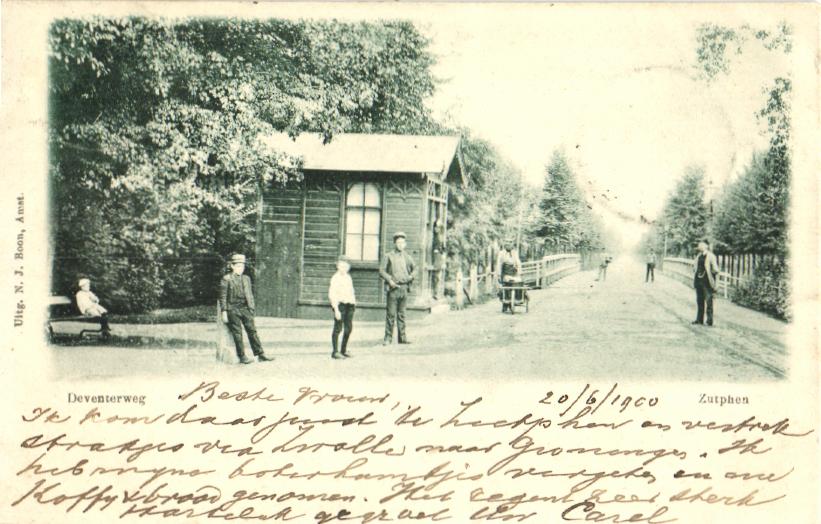 Uitg. N. J. Boon, Amst.
Deventerweg
Zutphen
Beste vrouw, 20/6/1900
Ik kom daar juist te Zeetphen en vertrek
straatjes via Zwolle naar Groningen. Ik
heb myne boterhamtjes vergeten en me
Koffy & brood genomen. Het regent zeer sterk
Hartelyk gegroet Uw Carel